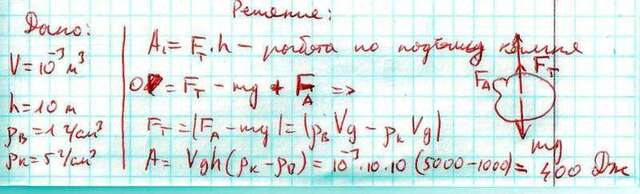 Дано:
V = 10⁻³ м³
h = 10 м
ρв = 1 г/см³
ρк = 5 г/см³
Решение:
A₁ = Fт · h – работа по подъёму камня
0 = Fт – mg + FA =>
Fт = |FA – mg| = |ρв Vg – ρк Vg|
A = Vgh(ρк – ρв) = 10⁻³ · 10 · 10 (5000 – 1000) = 400 Дж
Fт
FA
mg